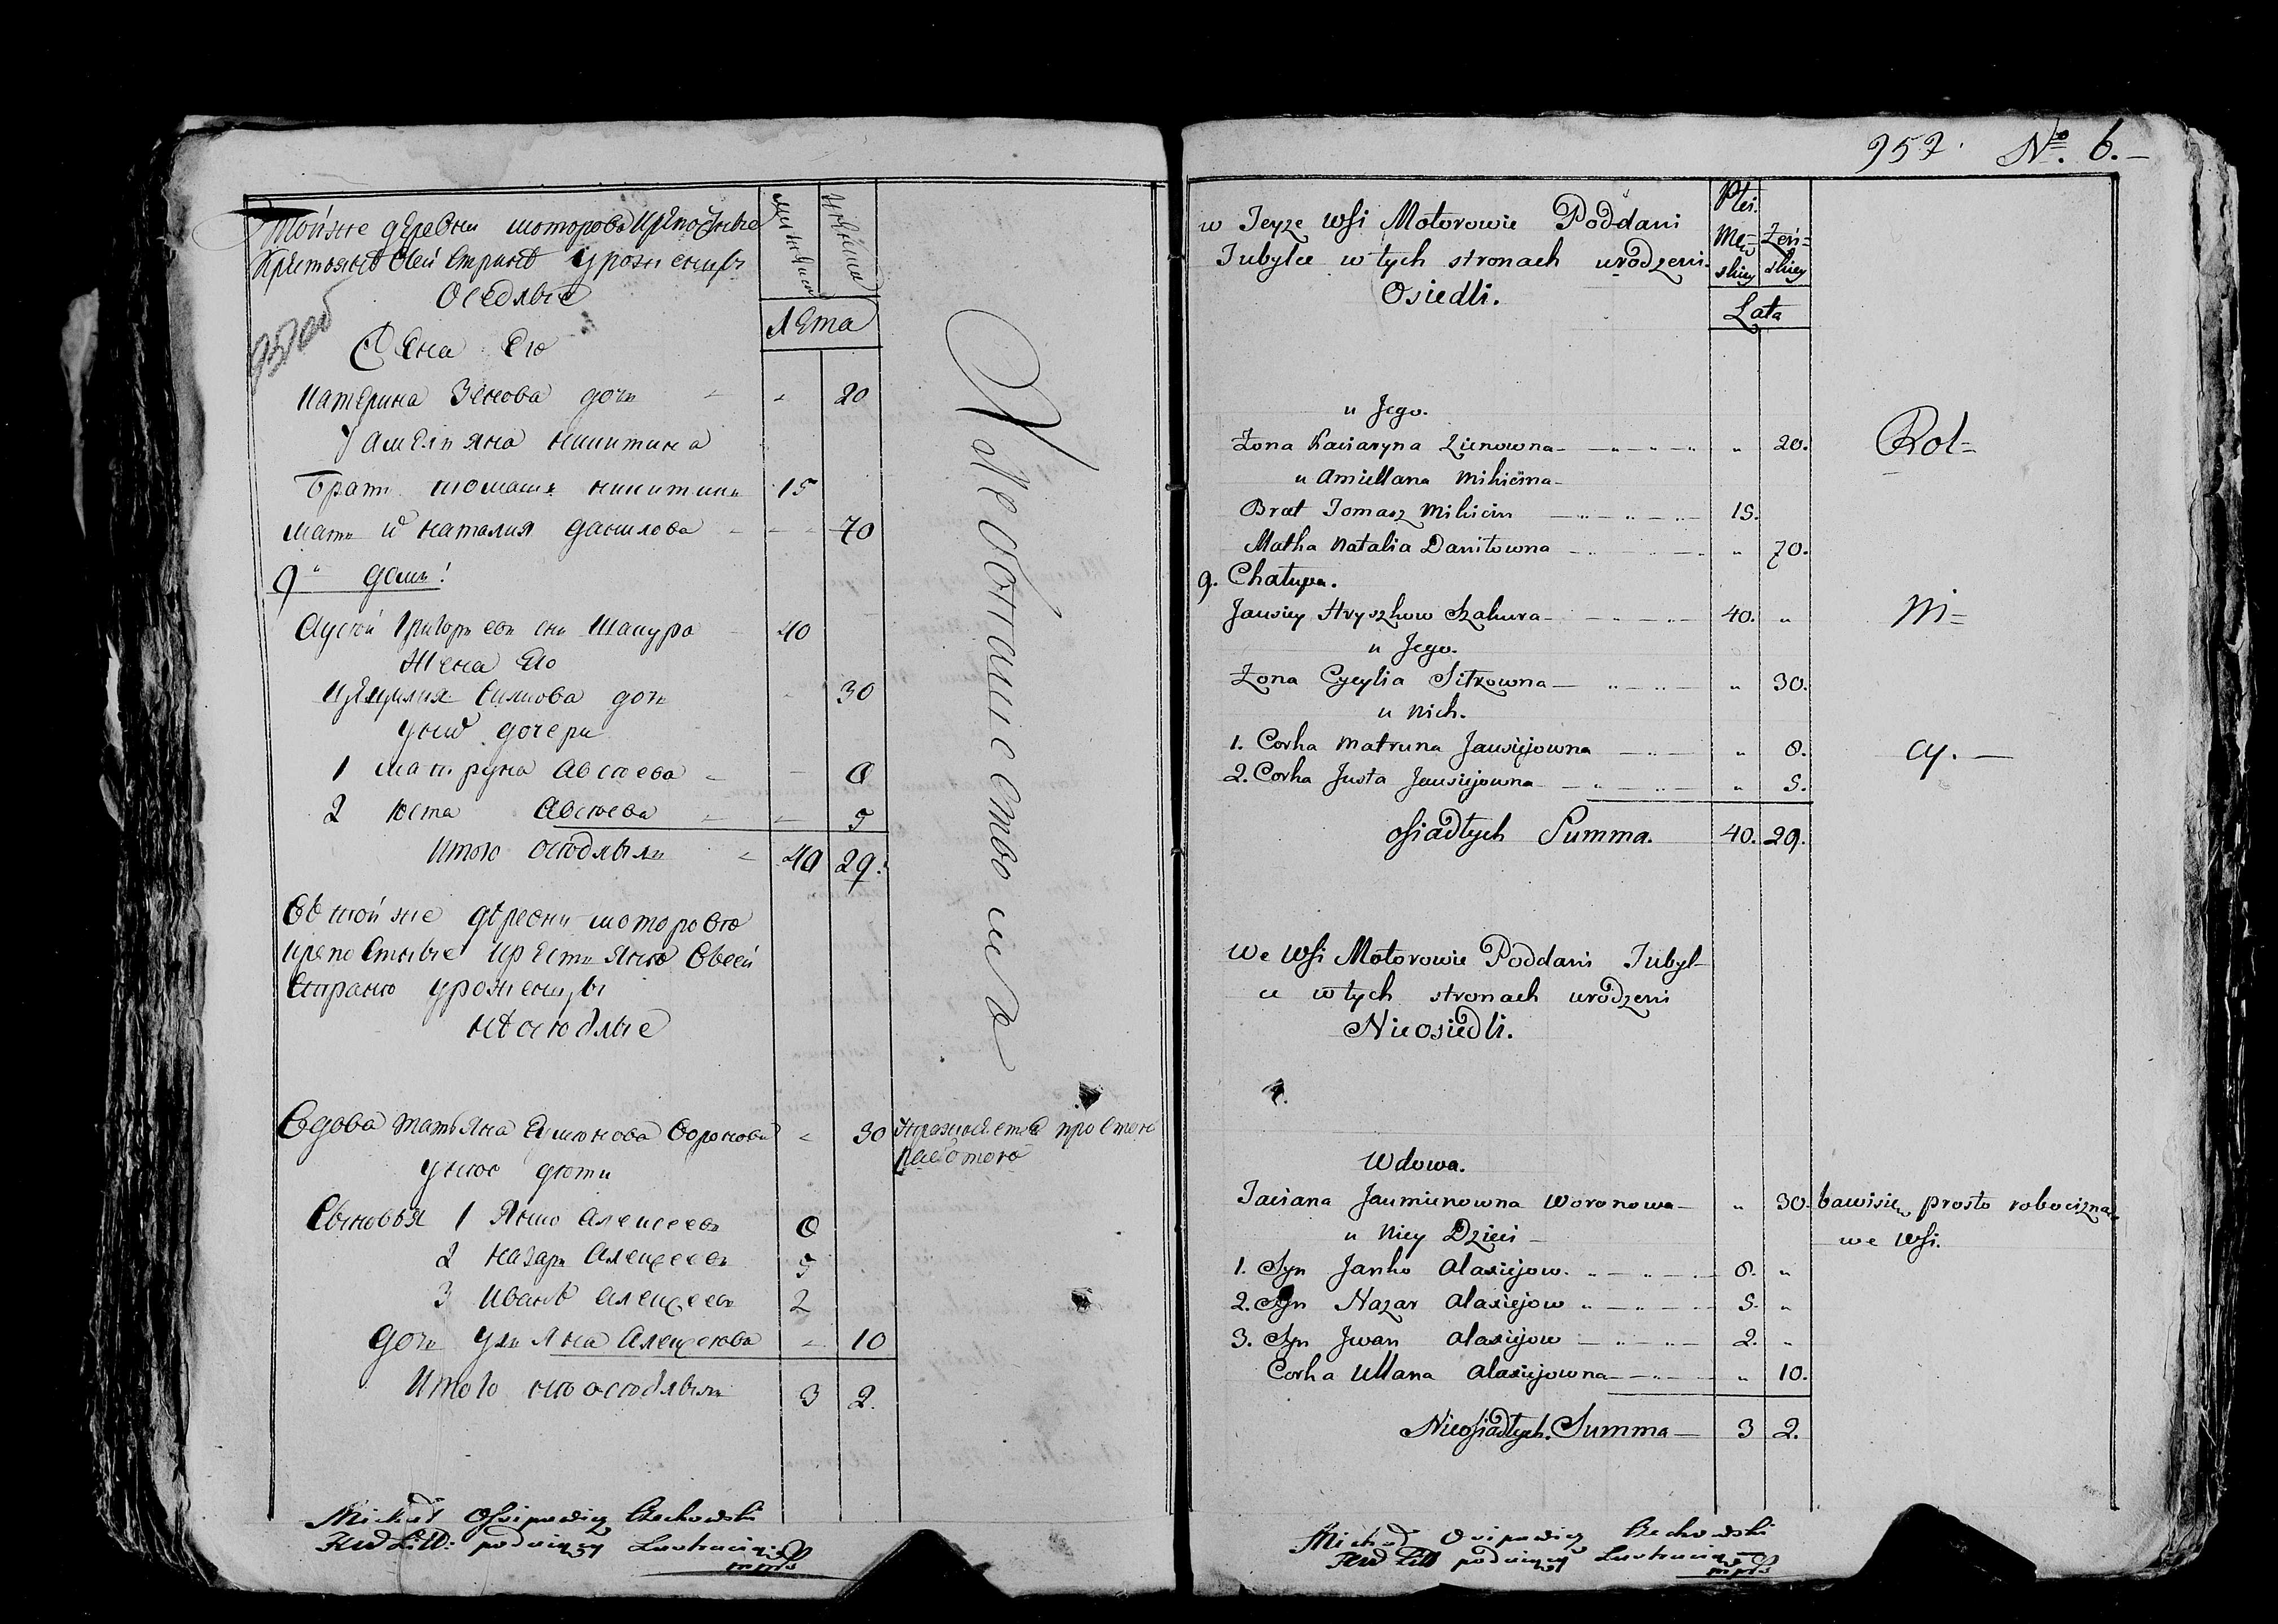 Тойже деревни моторова крепосные
Крестьяне сей стране уроженцы
Оседлые
мужеска
женска
лета
Жена Ево
Катерина Зенова дочь - - 20
У амельяна никитина
Братъ томашъ никитинъ 15
мать и наталия данилова - - - 70
9ъ домъ!
Аусей Григорьевъ снъ Шакура 40
Жена Ево
Цецилия Силкова дочь - 30
у нихъ дочери
1 матруна Авсеева - - 8
2 Юста Авсеева - - 5
Итого оседлыхъ - 40 29.
Хлебопашествомъ
Въ тойже деревни моторове
крепостные крестьяне Всей
Стране уроженцы
неоседлые
Вдова татьяна Воронова - 30 простою
работою
у нее дети
Сыновья 1 Янко Алексеевъ 8
2 Назаръ Алексеевъ 5
3 Иванъ Алексеевъ 2
дочь ульяна Алексеева - 10
Итого неоседлыхъ 3 2.
Michał Osipowicz Czechowski
957. No. 6.-
w Teyże Wsi Motorowie Poddani
Tubylce w tych stronach urodzeni
Osiedli.
Płci.
Męż=
skiey
Żeń=
skiey
Lata
u Jego.
Żona Kaciaryna Zienowna - " 20.
u Amiellana Mikicina -
Brat Tomasz Mikicin 15.
Matka Natalia Daniłowna " 70.
9. Chałupa.
Jausiey Hryszkow Szakura - 40. "
u Jego.
Żona Cycylia Sitkowna - " 30.
u Nich.
1. Corka Matruna Jausiejowna " 8.
2. Corka Justa Jausiejowna " 5.
Rol=
ni=
cy. -
osiadłych Summa. 40. 29.
We Wsi Motorowie Poddani Tubyl-
ce w tych stronach urodzeni
Nieosiedli.
Wdowa.
Taciana Jaumienowna Woronowa - " 30. bawi się prosto robocizna
we Wsi.
u Niey Dzieci -
1. Syn Janko Alaxiejow. 8. "
2. Syn Nazar Alaxiejow 5. "
3. Syn Jwan Alaxiejow 2. "
Corka Ullana Alaxiejowna " 10.
Nieosiadłych. Summa - 3 2.
Michał Osipowicz Czechowski